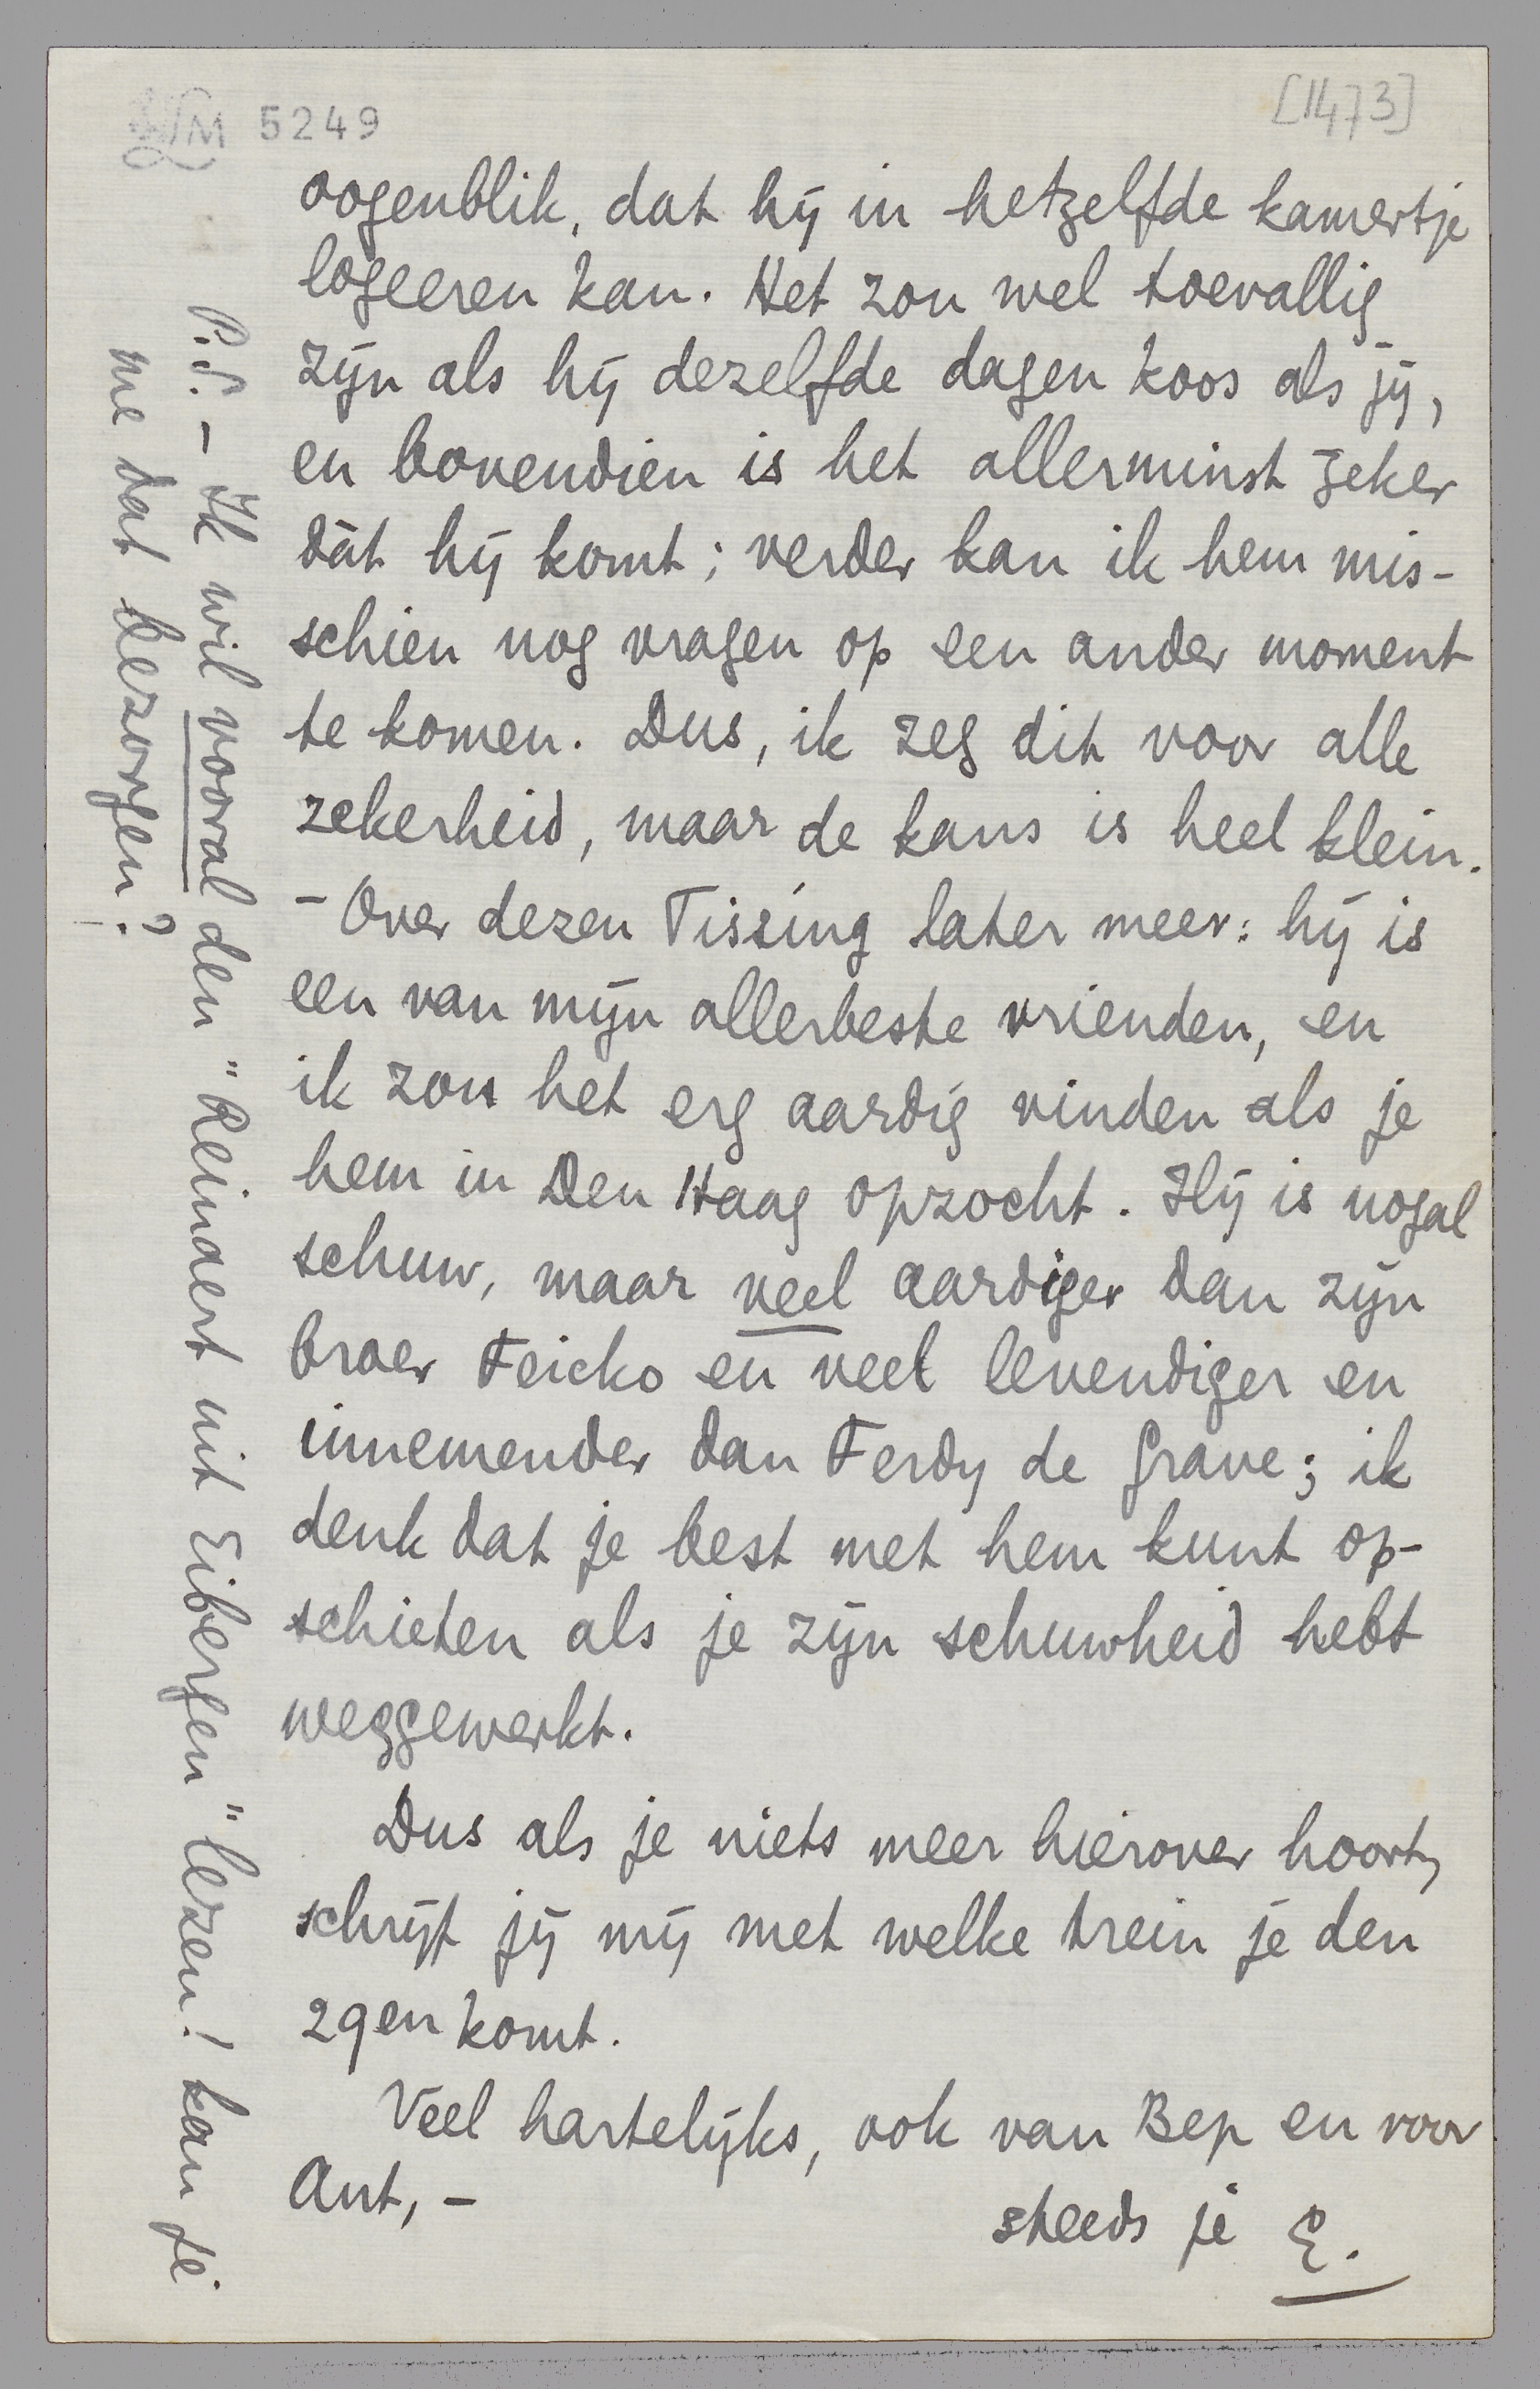 5249
[1473]
oogenblik, dat hij in hetzelfde kamertje
logeeren kan. Het zou wel toevallig
zijn als hij dezelfde dagen koos als jij,
en bovendien is het allerminst zeker
dàt hij komt; verder kan ik hem mis-
schien nog vragen op een ander moment
te komen. Dus, ik zeg dit voor alle
zekerheid, maar de kans is heel klein.
- Over dezen Tissing later meer: hij is
een van mijn allerbeste vrienden, en
ik zou het erg aardig vinden als je
hem in Den Haag opzocht. Hij is nogal
schuw, maar veel aardiger dan zijn
broer Feicko en veel levendiger en
innemender dan Ferdy de Grave; ik
denk dat je best met hem kunt op-
schieten als je zijn schuwheid hebt
weggewerkt.
Dus als je niets meer hierover hoort,
schrijf jij mij met welke trein je den
29en komt.
Veel hartelijks, ook van Bep en voor
Ant, -
steeds je E.
P.S. - Ik wil vooral den "Reindert uit Eibergen" lezen! kan je
me dat bezorgen?